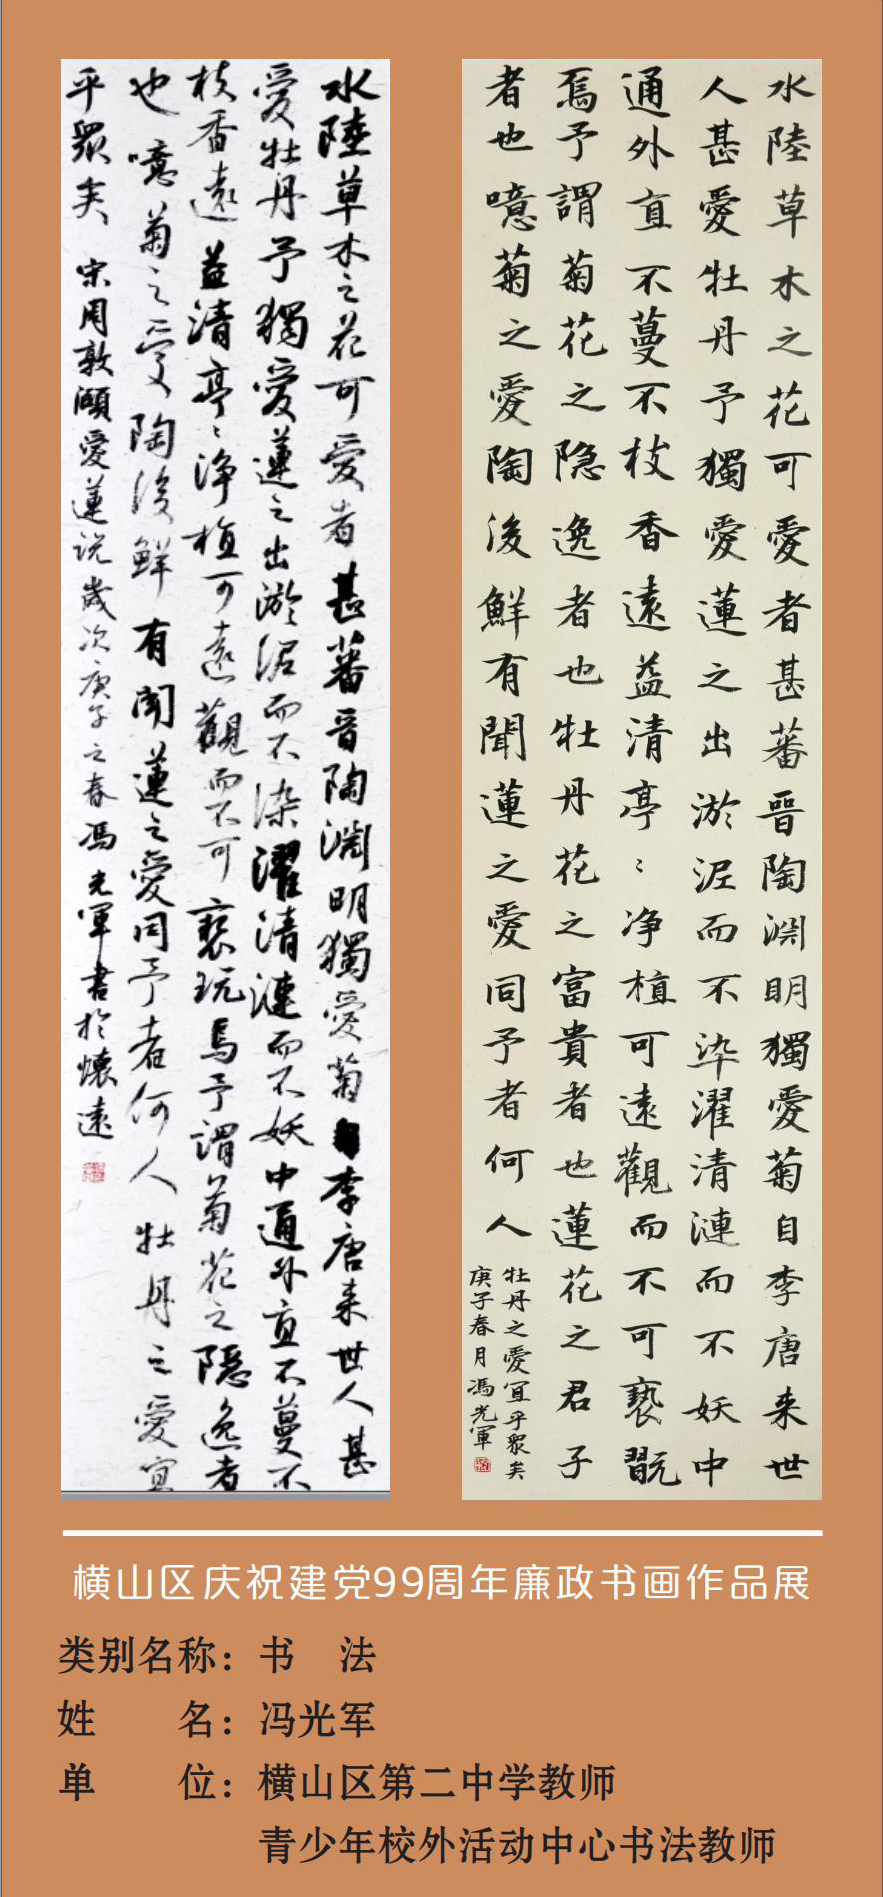 水陸草木之花可愛者甚蕃晉陶淵明獨愛菊自李唐来世人甚
愛牡丹予獨愛蓮之出淤泥而不染濯清漣而不妖中通外直不蔓不
枝香遠益清亭〻净植可遠觀而不可褻玩焉予謂菊花之隱逸者
也噫菊之愛陶後鮮有聞蓮之愛同予者何人牡丹之愛宜
乎眾矣 宋周敦頤愛蓮说歲次庚子之春馮光軍書於懷遠
水陸草木之花可愛者甚蕃晉陶淵明獨愛菊自李唐来世
人甚愛牡丹予獨愛蓮之出淤泥而不染濯清漣而不妖中
通外直不蔓不枝香遠益清亭〻净植可遠觀而不可褻翫
焉予謂菊花之隐逸者也牡丹花之富貴者也蓮花之君子
者也噫菊之愛陶後鮮有聞蓮之愛同予者何人
牡丹之愛宜乎眾矣
庚子春月馮光軍
横山区庆祝建党99周年廉政书画作品展
类别名称：书　法
姓　　名：冯光军
单　　位：横山区第二中学教师
青少年校外活动中心书法教师